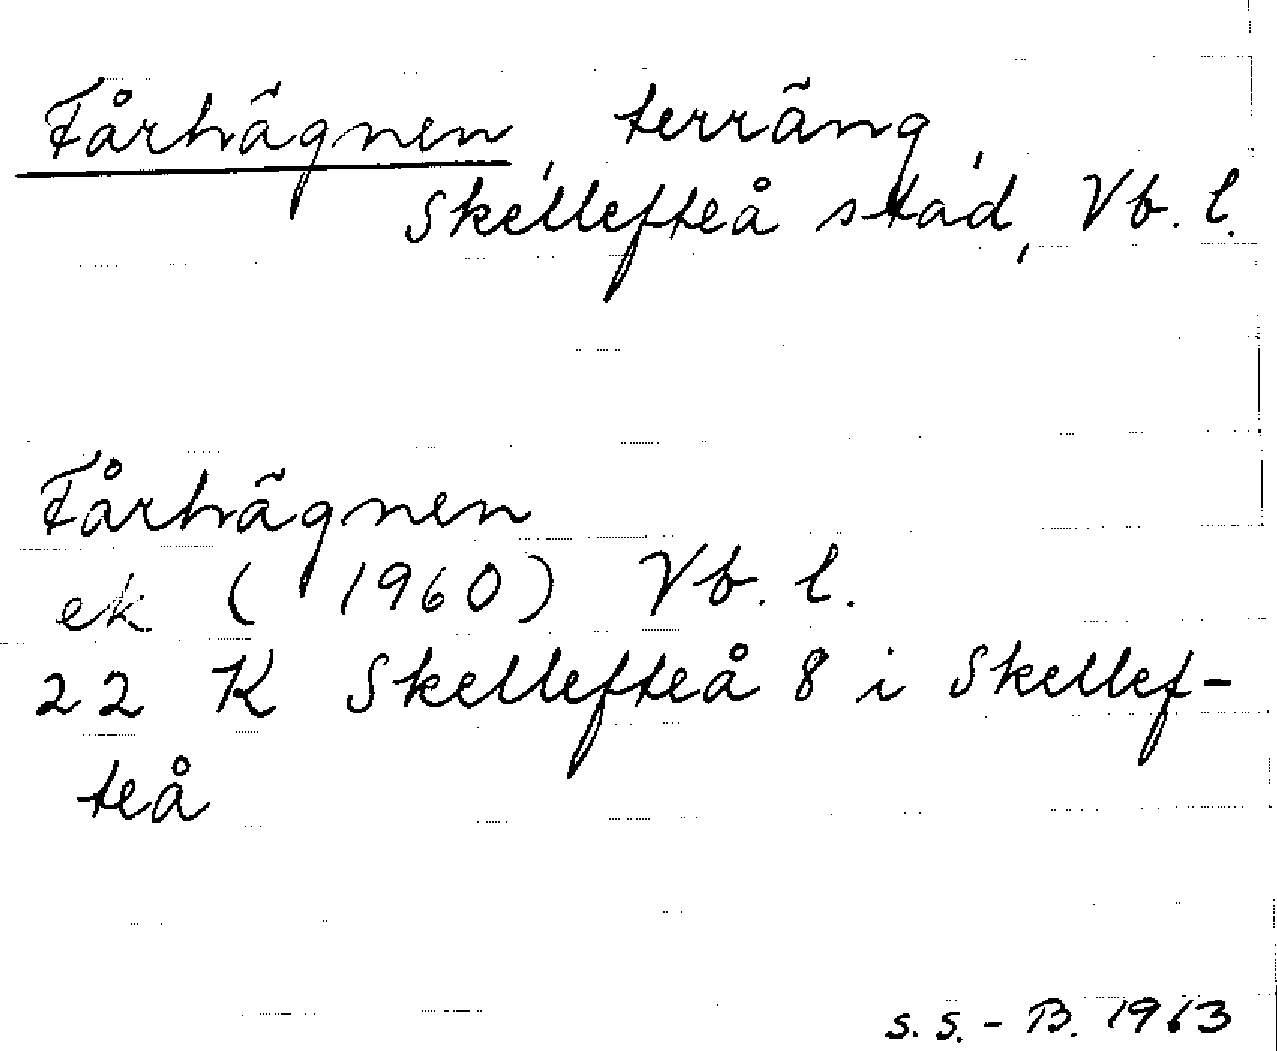 Fårhägnen, terräng,
Skellefteå stad, Vb. l.
Fårhägnen
ek (1960) Vb. l.
22 K Skellefteå 8 i Skellef-
teå
S. S. - B. 1963